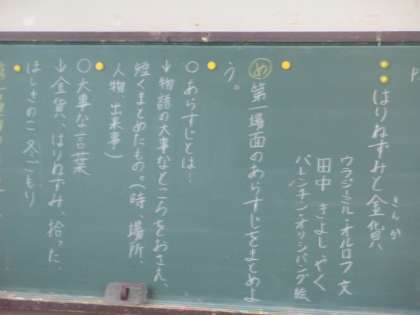 はりねずみと金貨
きんか
ウラジーミル・オルロフ 文
田中 きよし やく
バレンチン・オリシバング 絵
め 第一場面のあらすじをまとめよ
う。
○あらすじとは…
↓物語の大事なところをおさえ、
短くまとめたもの。(時、場所、
人物、出来事)
○大事な言葉
↓金貨、はりねずみ、拾った、
ほしきのこ、冬ごもり